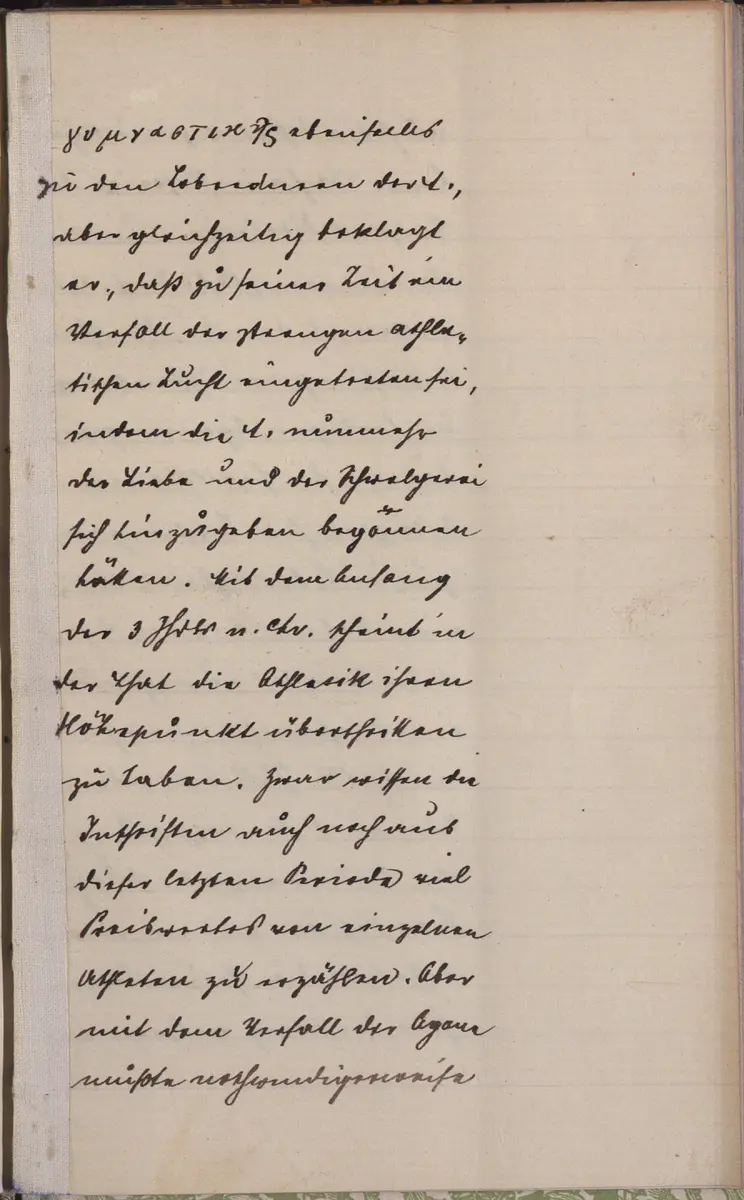 γυμναστικῆς ebenfalls
zu den Lobrednern der A.,
aber gleichzeitig beklagt
er, daß zu seiner Zeit ein
Verfall der strengen athle-
tischen Zucht eingetreten sei,
indem die A. nunmehr
der Liebe und der Schwelgerei
sich hinzugeben begönnen
hätten. Mit dem Anfang
des 3 Jhdts n. Chr. scheint in
der That die Athletik ihren
Höhepunkt überschritten
zu haben. Zwar wissen die
Inschriften auch noch aus
dieser letzten Periode viel
Preiswertes von einzelnen
Athleten zu erzählen. Aber
mit dem Verfall der Agone
mußte nothwendigerweise